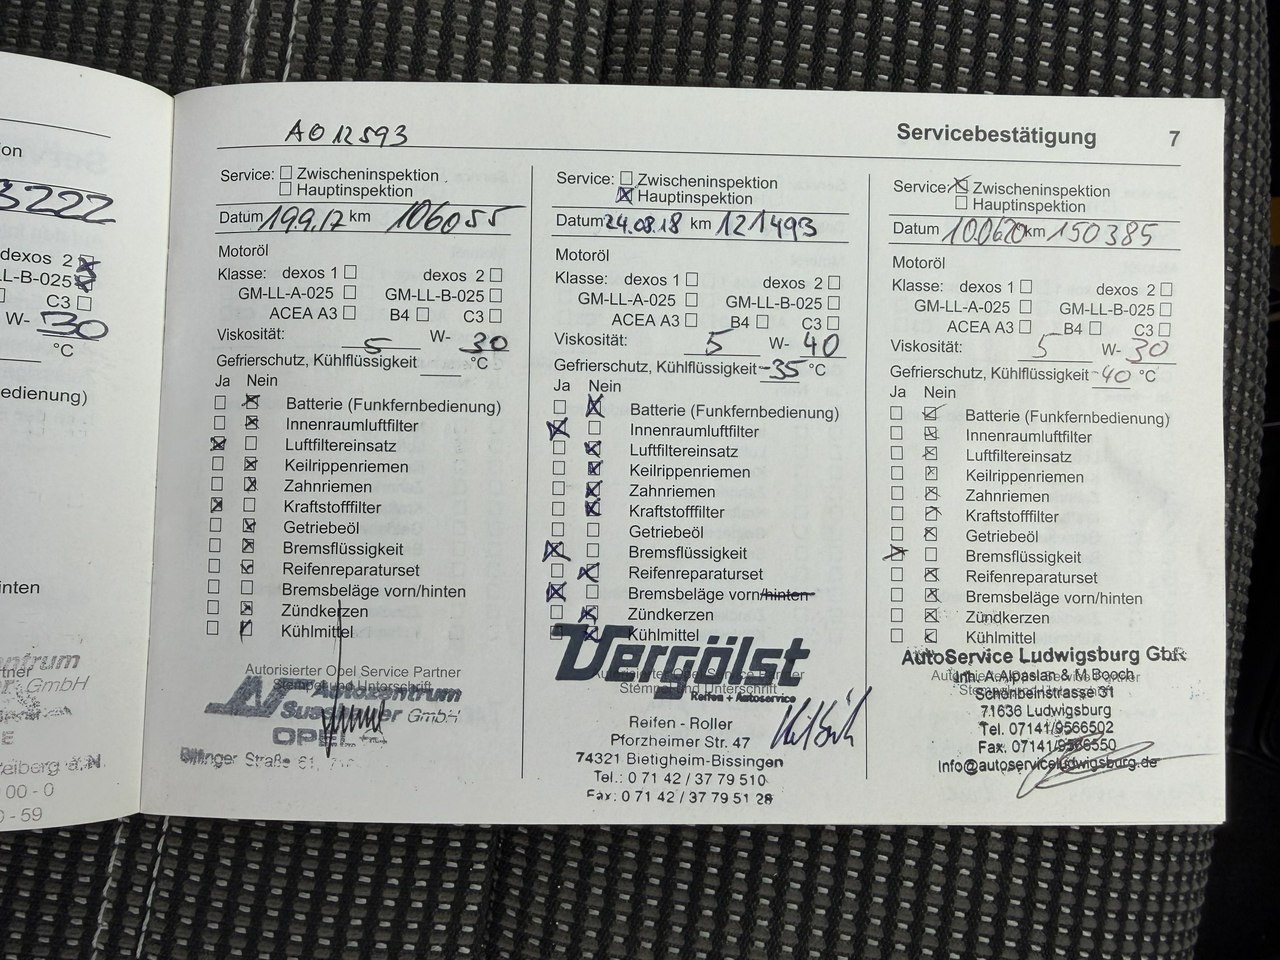 on
3222
dexos 2
LL-B-025
C3
W- 30
°C
edienung)
inten
AO 12593
Servicebestätigung 7
Service: Zwischeninspektion
Hauptinspektion
Datum 19.9.17 km 106055
Motoröl
Klasse: dexos 1 dexos 2
GM-LL-A-025 GM-LL-B-025
ACEA A3 B4 C3
Viskosität: 5 W- 30
Gefrierschutz, Kühlflüssigkeit °C
Ja Nein
Batterie (Funkfernbedienung)
Innenraumluftfilter
Luftfiltereinsatz
Keilrippenriemen
Zahnriemen
Kraftstofffilter
Getriebeöl
Bremsflüssigkeit
Reifenreparaturset
Bremsbeläge vorn/hinten
Zündkerzen
Kühlmittel
Autorisierter Opel Service Partner
Stempel und Unterschrift
Autozentrum
GmbH
OPEL
Straße 61
Service: Zwischeninspektion
Hauptinspektion
Datum 24.08.18 km 121493
Motoröl
Klasse: dexos 1 dexos 2
GM-LL-A-025 GM-LL-B-025
ACEA A3 B4 C3
Viskosität: 5 W- 40
Gefrierschutz, Kühlflüssigkeit -35 °C
Ja Nein
Batterie (Funkfernbedienung)
Innenraumluftfilter
Luftfiltereinsatz
Keilrippenriemen
Zahnriemen
Kraftstofffilter
Getriebeöl
Bremsflüssigkeit
Reifenreparaturset
Bremsbeläge vorn/hinten
Zündkerzen
Kühlmittel
Vergölst
Stempel und Unterschrift
Reifen + Autoservice
Reifen - Roller
Pforzheimer Str. 47
74321 Bietigheim-Bissingen
Tel.: 0 71 42 / 37 79 510
Fax: 0 71 42 / 37 79 51 28
Service: Zwischeninspektion
Hauptinspektion
Datum 10.06.20 km 150385
Motoröl
Klasse: dexos 1 dexos 2
GM-LL-A-025 GM-LL-B-025
ACEA A3 B4 C3
Viskosität: 5 W- 30
Gefrierschutz, Kühlflüssigkeit -40 °C
Ja Nein
Batterie (Funkfernbedienung)
Innenraumluftfilter
Luftfiltereinsatz
Keilrippenriemen
Zahnriemen
Kraftstofffilter
Getriebeöl
Bremsflüssigkeit
Reifenreparaturset
Bremsbeläge vorn/hinten
Zündkerzen
Kühlmittel
AutoService Ludwigsburg GbR
Inh. A.Alpaslan & M.Bopch
Schönbeinstrasse 31
71636 Ludwigsburg
Tel. 07141/9566502
Fax. 07141/9566550
Info@autoserviceludwigsburg.de